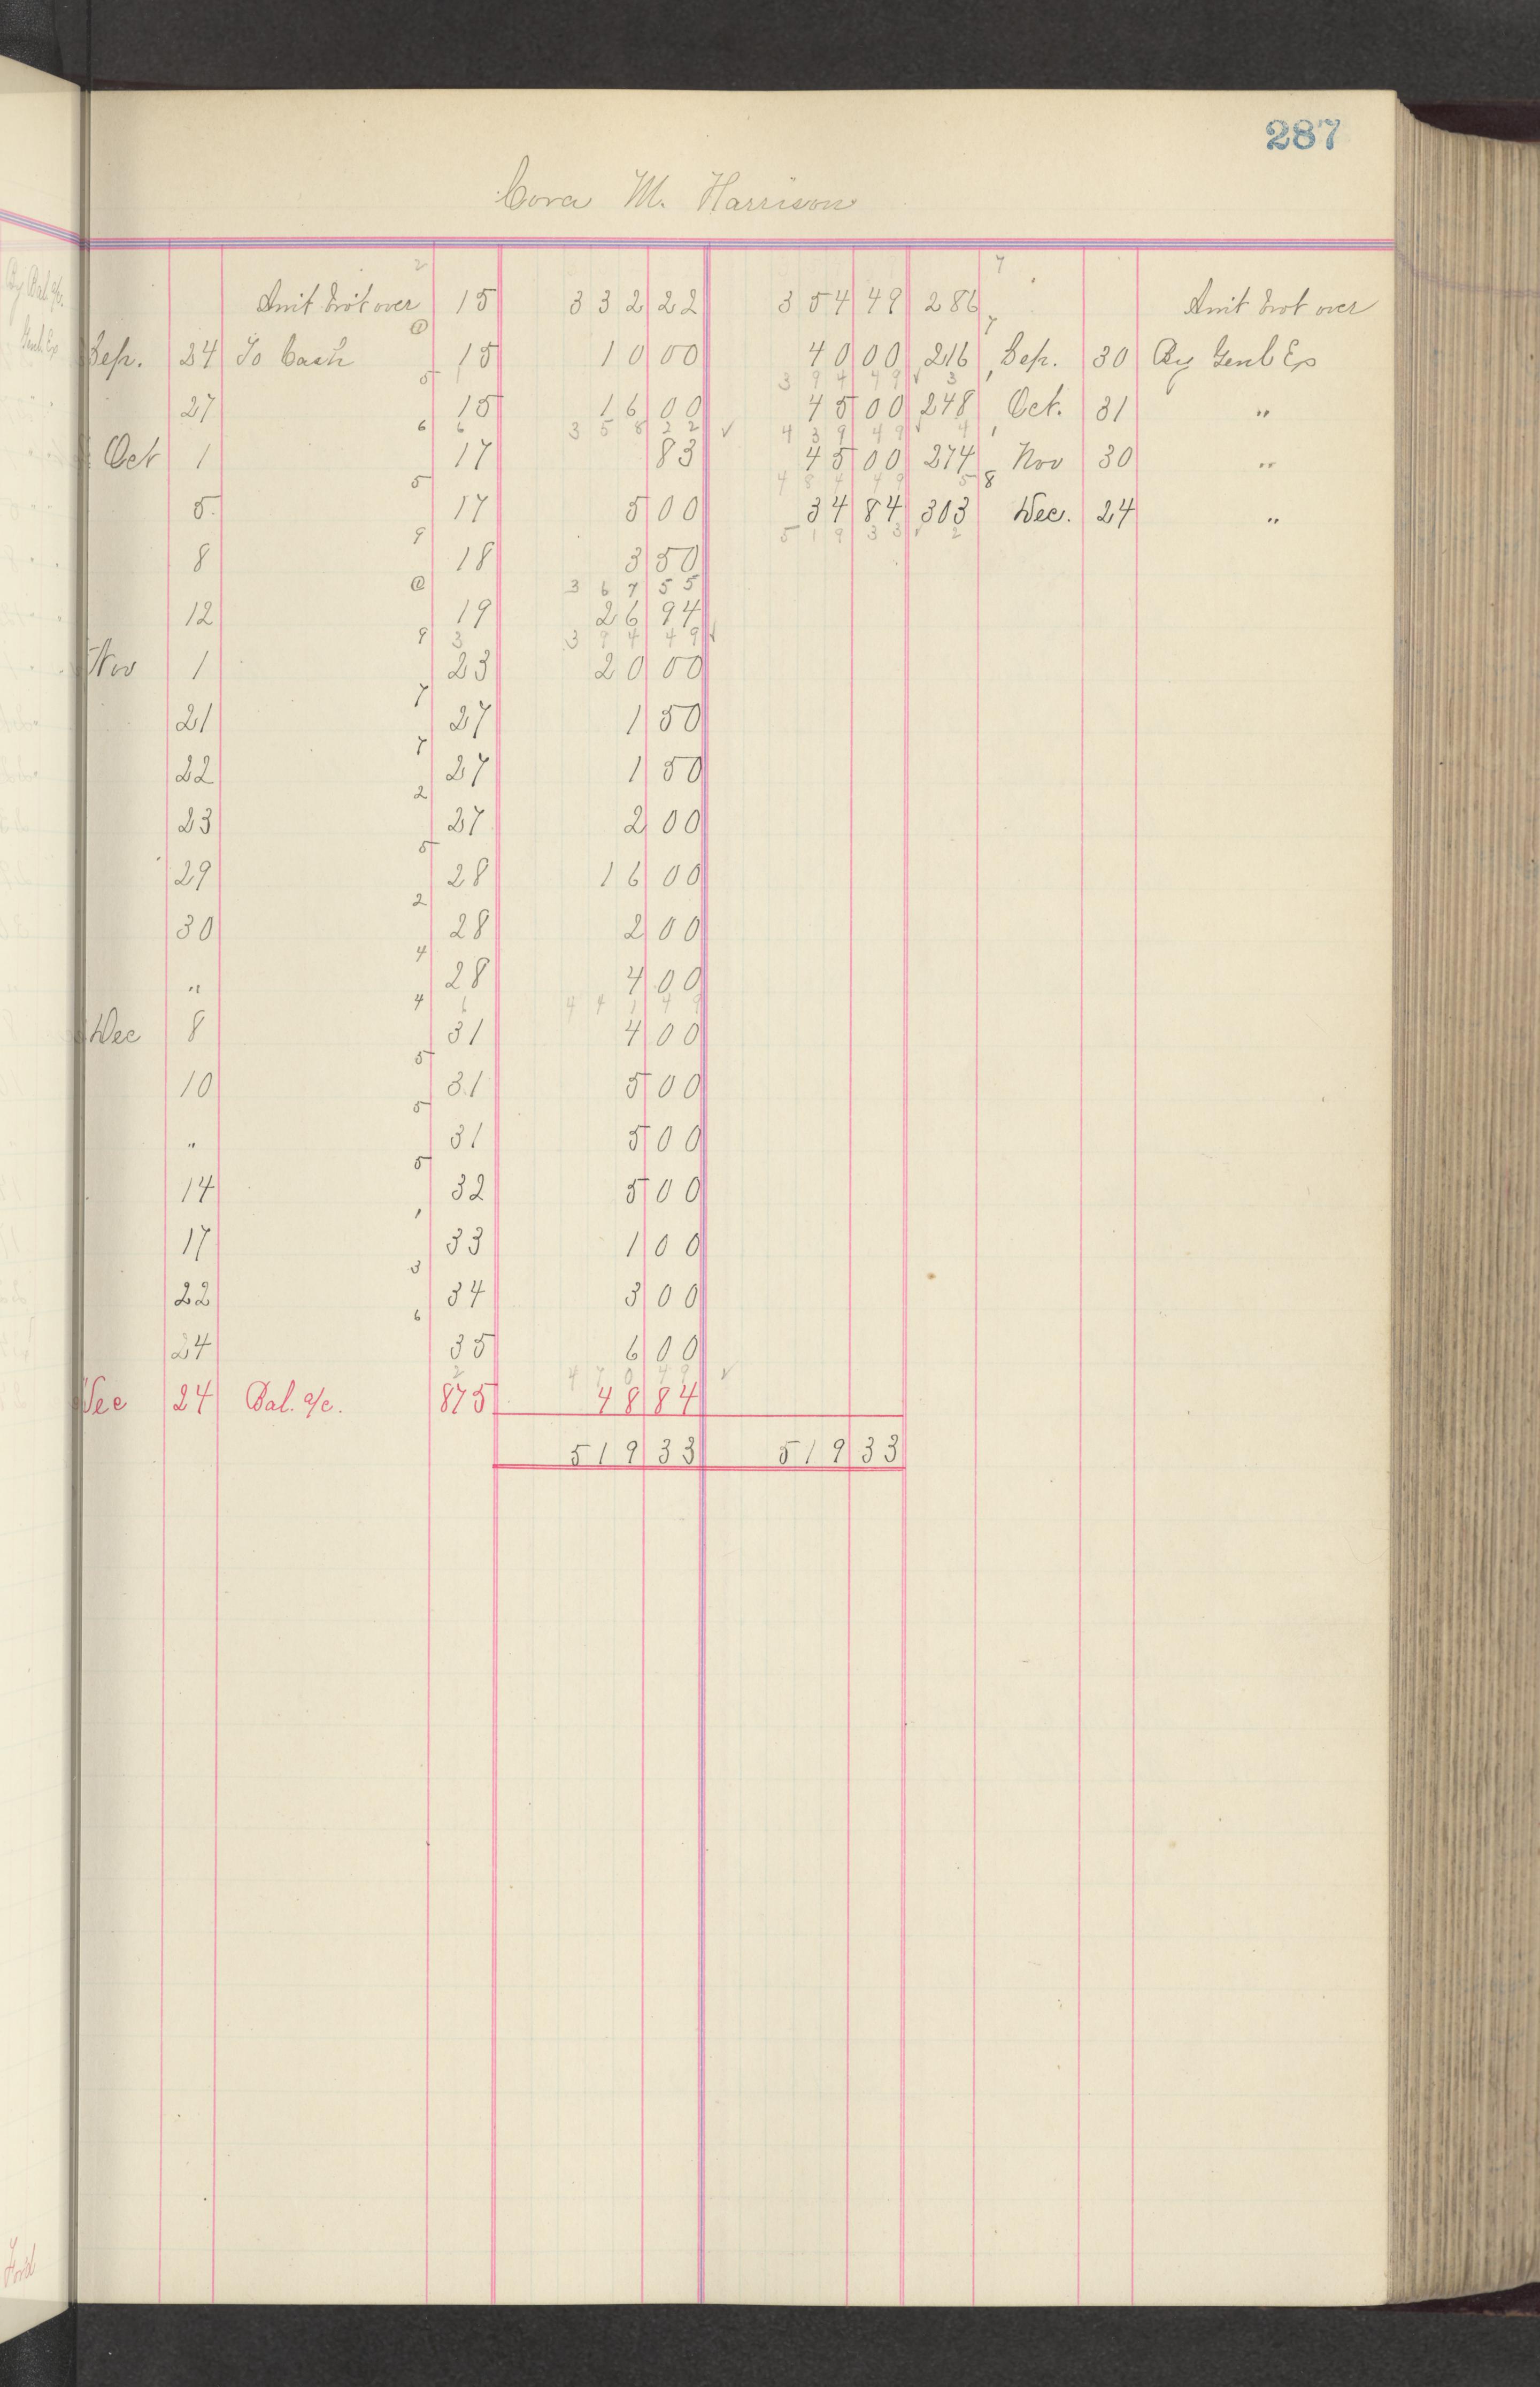 287
Cora M. Harrison
2 7
Amt brot over 15 332 22 354 49 286 Amt brot over
Sep. 24 To Cash 15 10 00 40 00 216 Sep. 30 By Genl Ex
394 49 3
27 15 16 00 45 00 248 Oct. 31 "
6 358 22 ✓ 439 49 4
Oct 1 17 83 45 00 274 Nov 30 "
484 49 5
5 17 5 00 34 84 303 Dec. 24 "
519 33 2
8 18 3 50
367 55
12 19 26 94
3 394 49
Nov 1 23 20 00
21 27 1 50
22 27 1 50
23 27 2 00
29 28 16 00
30 28 2 00
" 28 4 00
6 441 49
Dec 8 31 4 00
10 31 5 00
" 31 5 00
14 32 5 00
17 33 1 00
22 34 3 00
24 35 6 00
2 470 49 ✓
Dec 24 Bal. a/c. 875 48 84
519 33 519 33